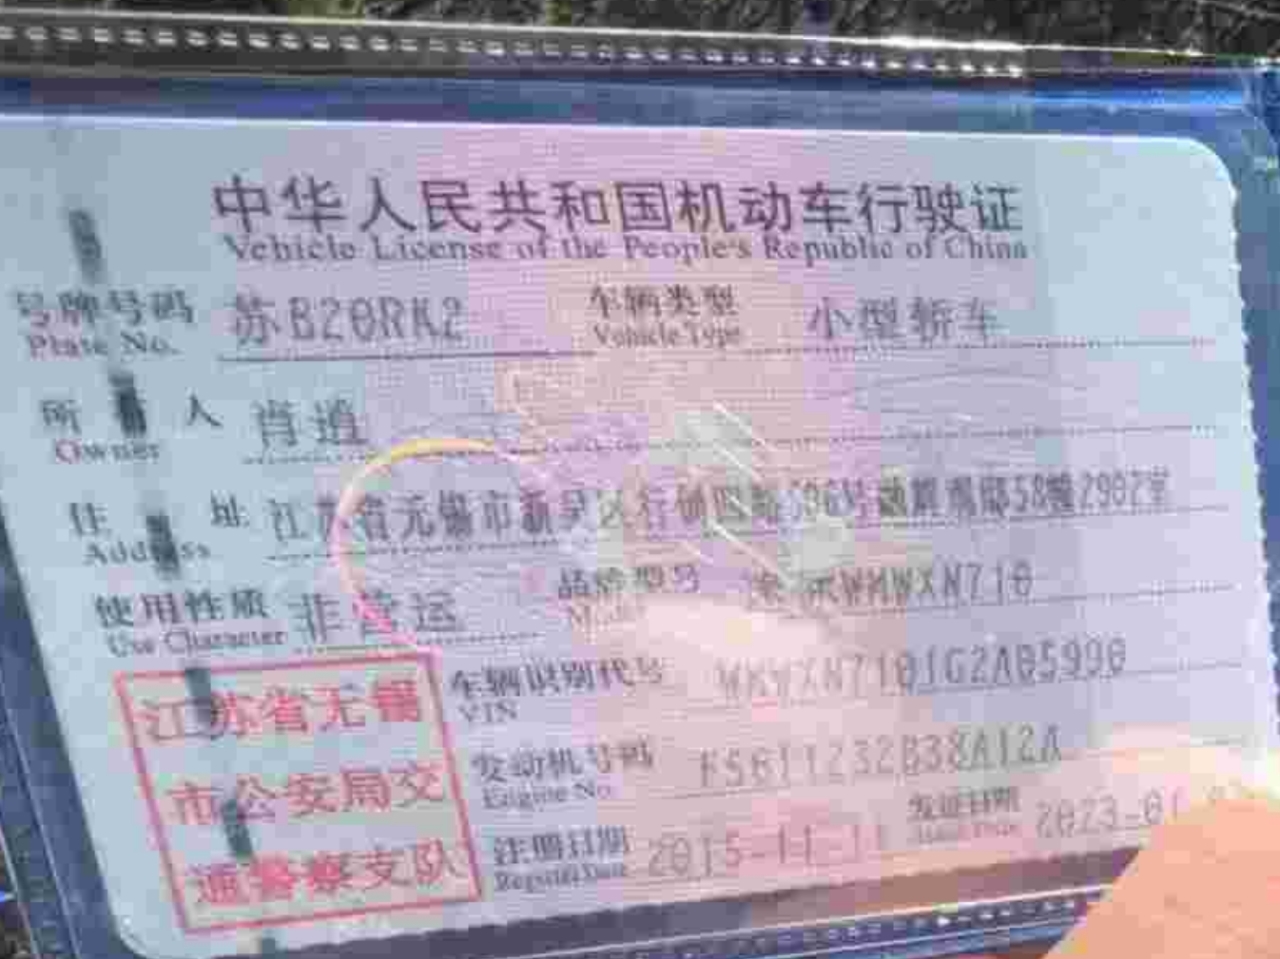 中华人民共和国机动车行驶证
Vehicle License of the People's Republic of China
号牌号码 苏B20RK2 车辆类型 小型轿车
Plate No. Vehicle Type
所有人 肖逍
Owner
住址 江苏省无锡市新吴区行创四路 58幢2902室
Address
使用性质 非营运 品牌型号 WMWXN710
Use Character
车辆识别代号 WMWXN7101G2A05990
VIN
发动机号码 F5611232B38A12A
Engine No.
注册日期 2015-11-11 发证日期 2023-01
Register Date Issue Date
江苏省无锡
市公安局交
通警察支队